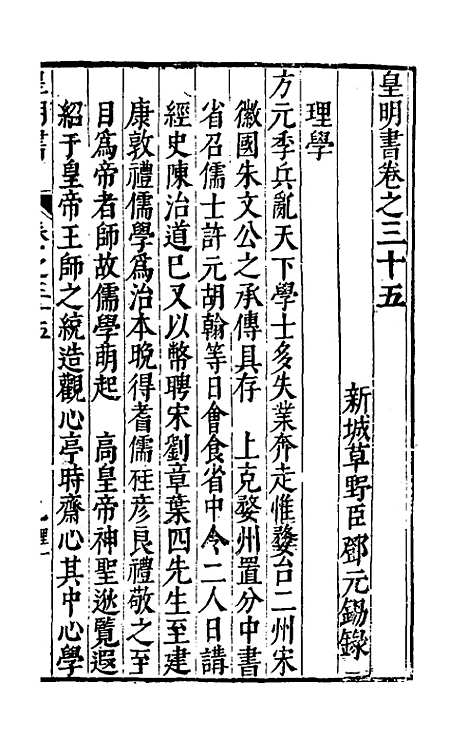 皇明書卷之三十五
新城草野臣鄧元錫錄
理學
方元季兵亂天下學士多失業奔走惟婺台二州宋
徽國朱文公之承傳具存　上克婺州置分中書
省召儒士許元胡翰等日會食省中令二人日講
經史陳治道已又以幣聘宋劉章葉四先生至建
康敦禮儒學爲治本晚得耆儒桂彥良禮敬之至
目爲帝者師故儒學萌起　高皇帝神聖逖覽遐
紹于皇帝王師之統造觀心亭時齋心其中心學
皇明書
卷之三十五
理一